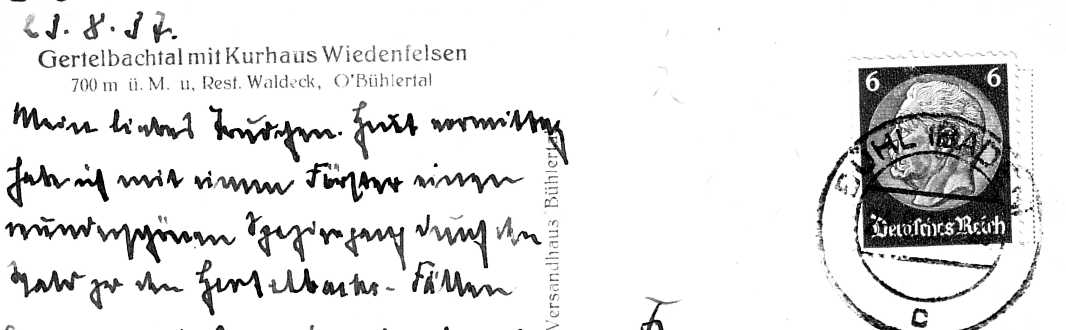 23.8.37.
Gertelbachtal mit Kurhaus Wiedenfelsen
700 m ü. M. u, Rest. Waldeck, O'Bühlertal
Mein liebes Trudchen. Heut vormittag
habe ich mit einem Förster einen
wunderschönen Spaziergang durch den
Wald zu den Gertelbach-Fällen
Versandhaus Bühlertal
6 6
Deutsches Reich
BÜHL (BAD
c